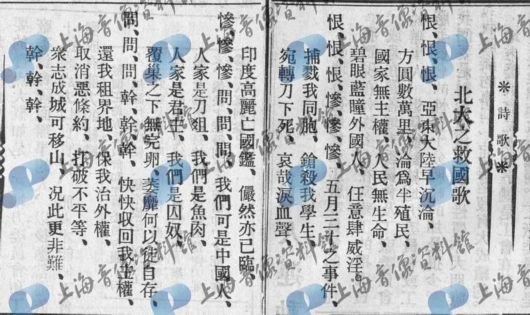 ※ 詩歌 ※
北大之救國歌
恨、恨、恨、亞東大陸早沉淪、
方圓數萬里、淪爲半殖民、
國家無主權、人民無生命、
碧眼藍瞳外國人、任意肆威淫、
恨、恨、恨、慘、慘、慘、五月三十之事件、
捕戮我同胞、鎗殺我學生、
宛轉刀下死、哀哉淚血聲、
印度高麗亡國鑑、儼然亦已臨、
慘、慘、慘、問、問、問、我們可是中國人、
人家是刀俎、我們是魚肉、
人家是君主、我們是囚奴、
覆巢之下無完卵、萎靡何以徒自存、
問、問、問、幹、幹、幹、快快收回我主權、
還我租界地、保我治外權、
取消惡條約、打破不平等、
衆志成城可移山、況此更非難、
幹、幹、幹、
上海音像資料館